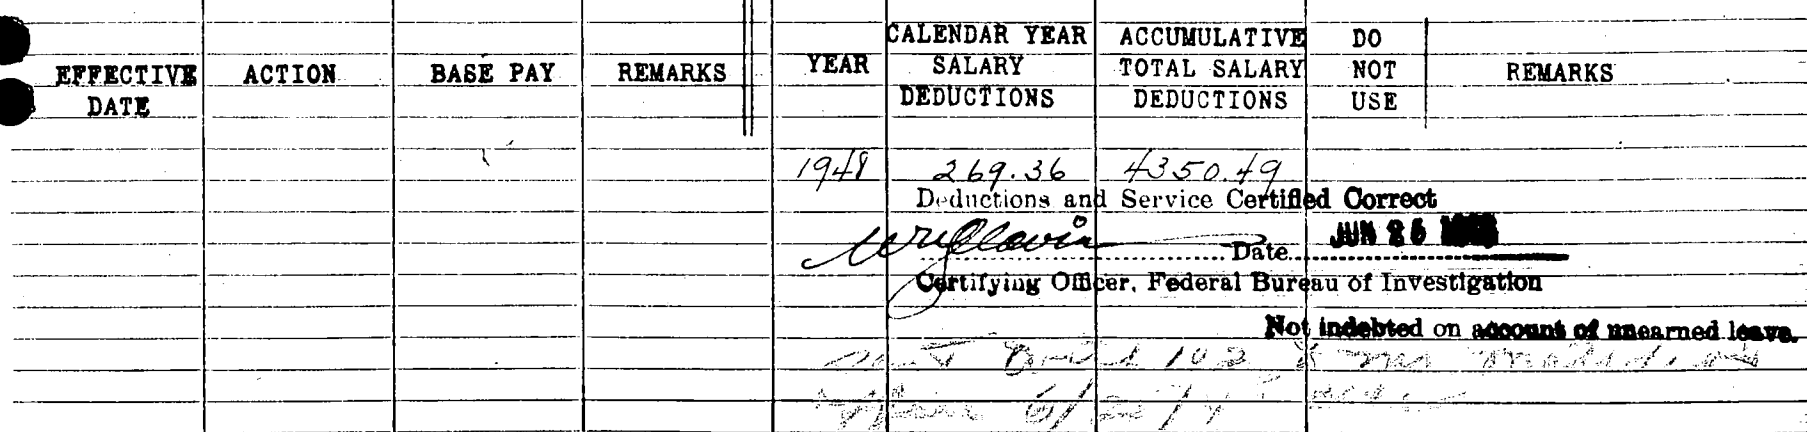 EFFECTIVE DATE ACTION BASE PAY REMARKS YEAR CALENDAR YEAR SALARY DEDUCTIONS ACCUMULATIVE TOTAL SALARY DEDUCTIONS DO NOT USE REMARKS
1948 269.36 4350.49
Deductions and Service Certified Correct
Date JUN 25
Certifying Officer, Federal Bureau of Investigation
Not indebted on account of unearned leave.